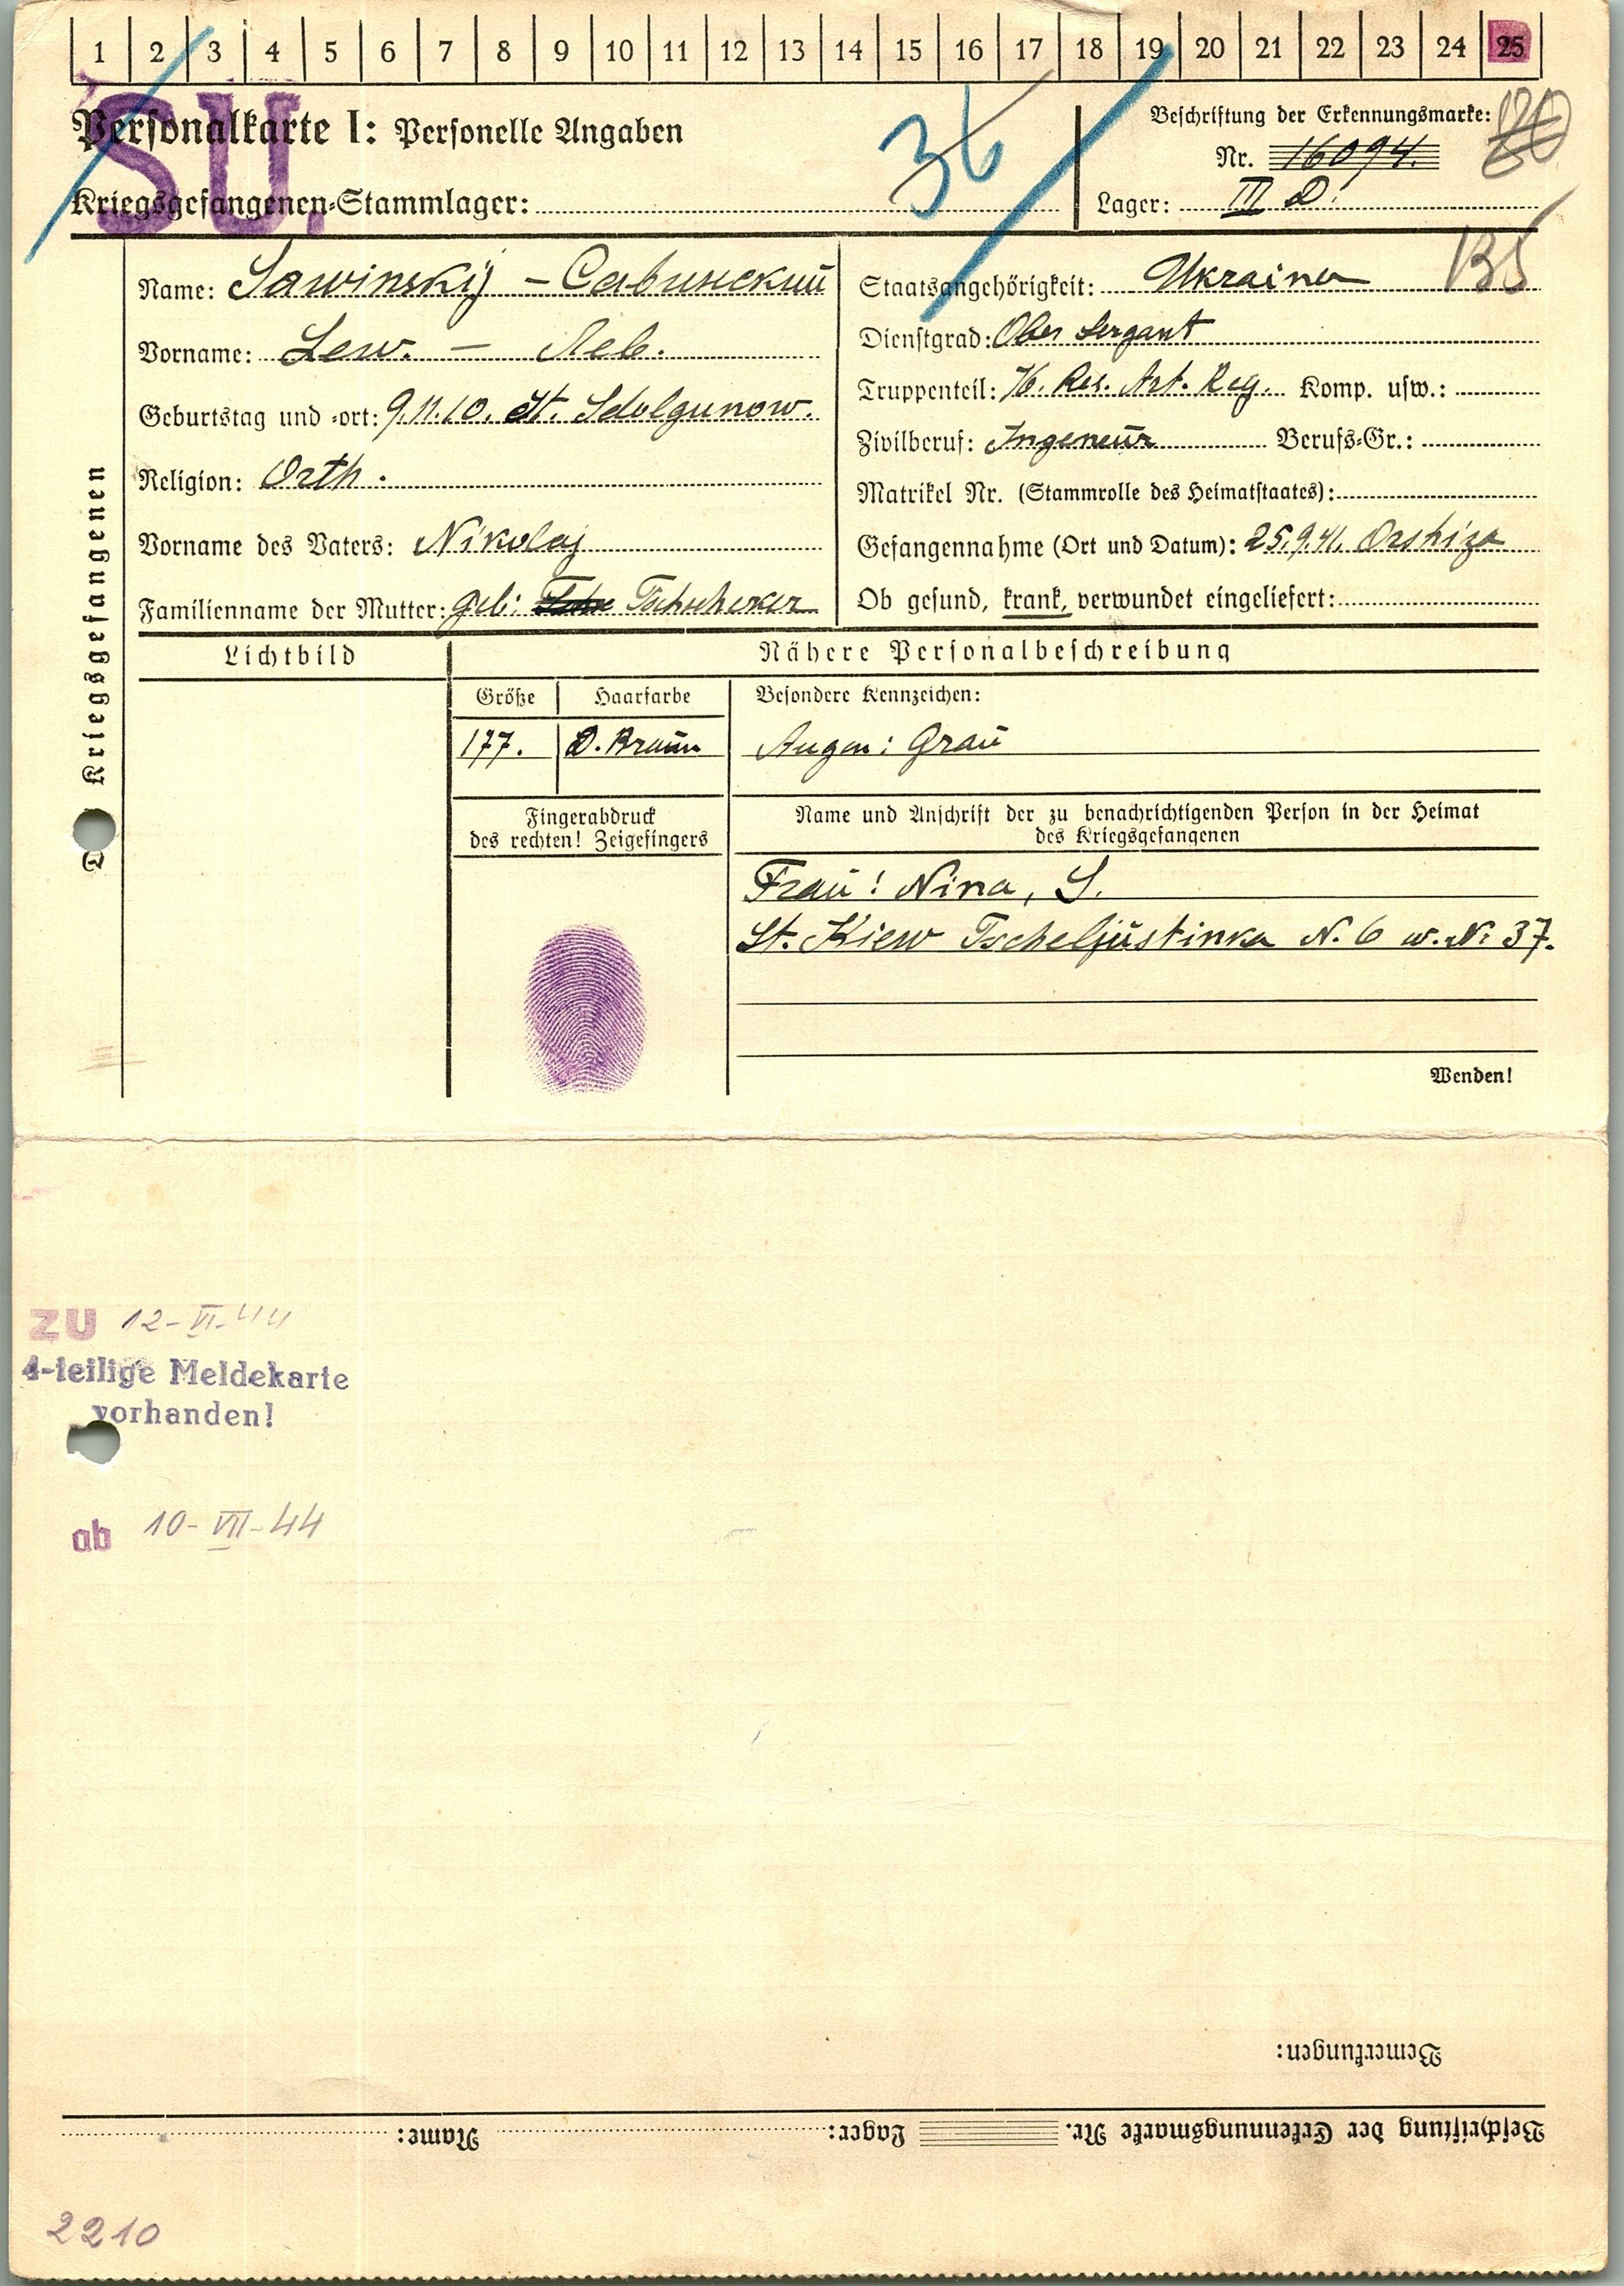 1 2 3 4 5 6 7 8 9 10 11 12 13 14 15 16 17 18 19 20 21 22 23 24 25
SU.
Personalkarte I: Personelle Angaben
36
Beschriftung der Erkennungsmarke:
Nr. 16094.
Kriegsgefangenen-Stammlager:
Lager: III D.
Des Kriegsgefangenen
Name: Sawinskij - Савинский
Vorname: Lew. - Лев.
Geburtstag und -ort: 9.11.10. St. Sdolgunow.
Religion: Orth.
Vorname des Vaters: Nikolaj
Familienname der Mutter: geb:
Staatsangehörigkeit: Ukrainer
Dienstgrad: Ober Sergant
Truppenteil: 76. Res. Art. Reg. Komp. usw.:
Zivilberuf: Ingeneur Berufs-Gr.:
Matrikel Nr. (Stammrolle des Heimatstaates):
Gefangennahme (Ort und Datum): 25.9.41. Orshiza
Ob gesund, krank, verwundet eingeliefert:
Lichtbild
Nähere Personalbeschreibung
Größe Haarfarbe Besondere Kennzeichen:
177. D. Braun Augen: Grau
Fingerabdruck
des rechten! Zeigefingers
Name und Anschrift der zu benachrichtigenden Person in der Heimat
des Kriegsgefangenen
Frau: Nina, S.
St. Kiew Tscheljustinka N. 6 w. N: 37.
Wenden!
ZU 12-VI-44
4-teilige Meldekarte
vorhanden!
ab 10-VII-44
Bemerkungen:
Beschriftung der Erkennungsmarke Nr. Lager: Name:
2210